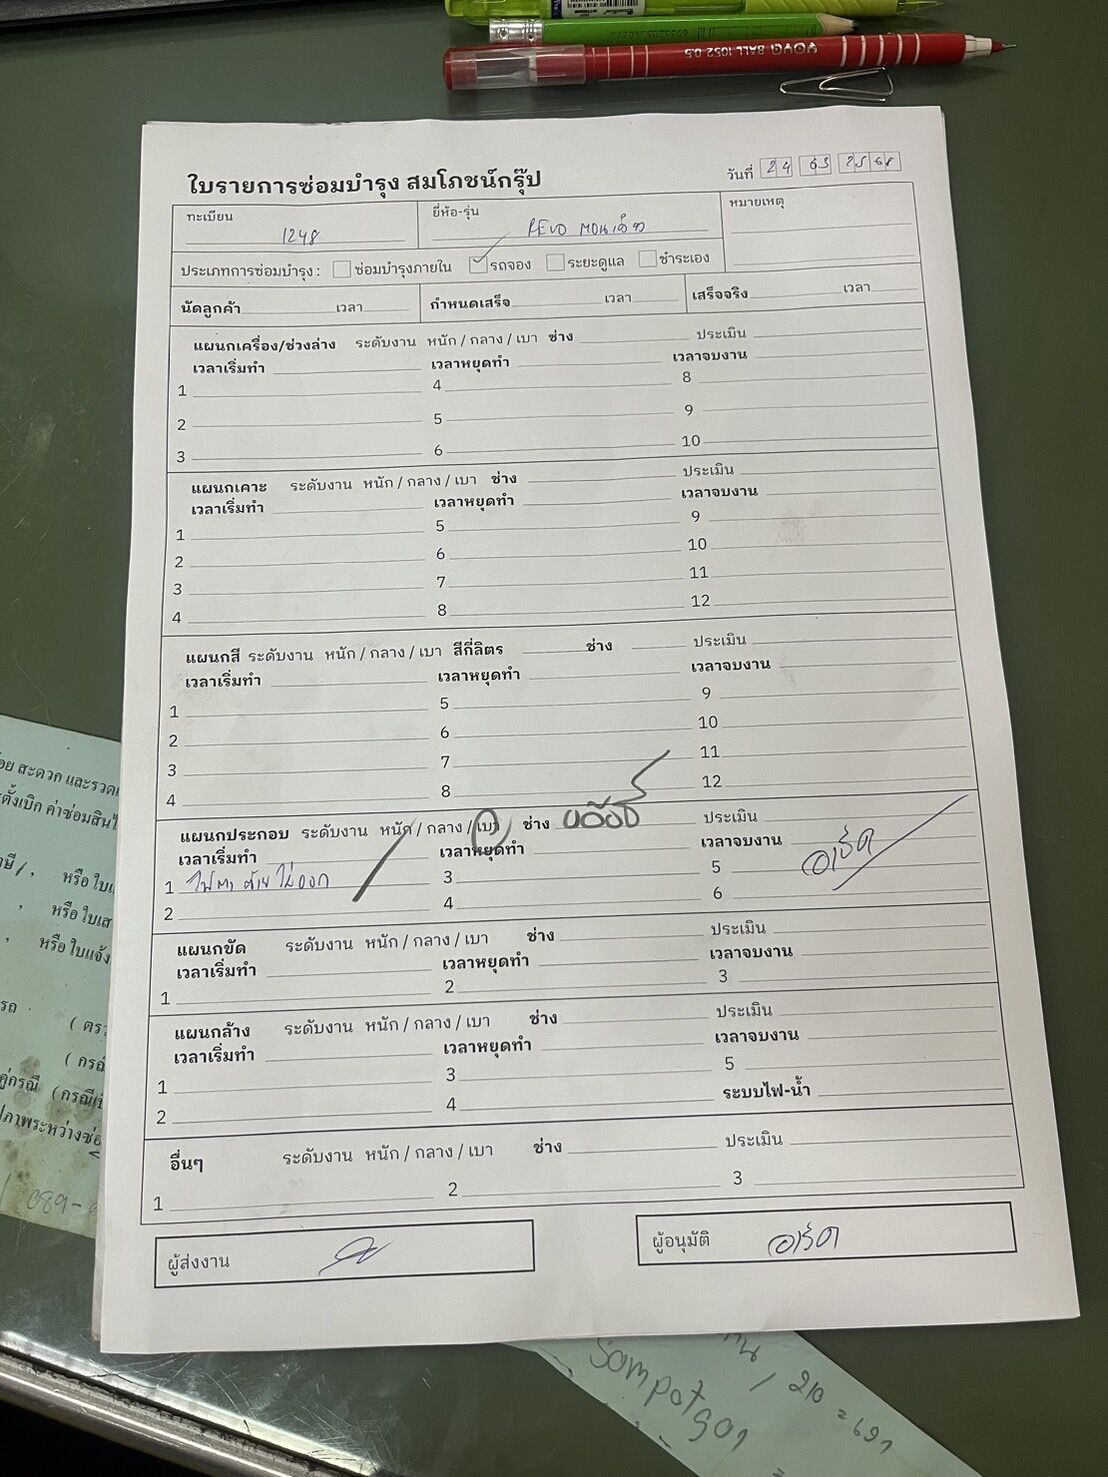 YOYA BALL 1052 0.5
ใบรายการซ่อมบำรุง สมโภชน์กรุ๊ป
วันที่ 24 03 2568
ทะเบียน 1248
ยี่ห้อ-รุ่น REVO ตอนเดียว
หมายเหตุ
ประเภทการซ่อมบำรุง : ซ่อมบำรุงภายใน รถจอง ระยะดูแล ชำระเอง
นัดลูกค้า เวลา กำหนดเสร็จ เวลา เสร็จจริง เวลา
แผนกเครื่อง/ช่วงล่าง ระดับงาน หนัก / กลาง / เบา ช่าง ประเมิน
เวลาเริ่มทำ เวลาหยุดทำ เวลาจบงาน
1 4 8
2 5 9
3 6 10
แผนกเคาะ ระดับงาน หนัก / กลาง / เบา ช่าง ประเมิน
เวลาเริ่มทำ เวลาหยุดทำ เวลาจบงาน
1 5 9
2 6 10
3 7 11
4 8 12
แผนกสี ระดับงาน หนัก / กลาง / เบา สีกี่ลิตร ช่าง ประเมิน
เวลาเริ่มทำ เวลาหยุดทำ เวลาจบงาน
1 5 9
2 6 10
3 7 11
4 8 12
แผนกประกอบ ระดับงาน หนัก / กลาง / เบา ช่าง ประเมิน
เวลาเริ่มทำ เวลาหยุดทำ เวลาจบงาน
1 ไฟตาซ้ายไม่ออก 3 5
2 4 6
แผนกขัด ระดับงาน หนัก / กลาง / เบา ช่าง ประเมิน
เวลาเริ่มทำ เวลาหยุดทำ เวลาจบงาน
1 2 3
แผนกล้าง ระดับงาน หนัก / กลาง / เบา ช่าง ประเมิน
เวลาเริ่มทำ เวลาหยุดทำ เวลาจบงาน
1 3 5
2 4 ระบบไฟ-น้ำ
อื่นๆ ระดับงาน หนัก / กลาง / เบา ช่าง ประเมิน
1 2 3
ผู้ส่งงาน
ผู้อนุมัติ
สะดวก และรวด
ตั้งเบิก ค่าซ่อมสิน
หรือ ใบ
หรือ ใบเส
หรือ ใบแจ้ง
รถ
( ตร
( กรณี
คู่กรณี (กรณี
ภาพระหว่างซ่อ
089-